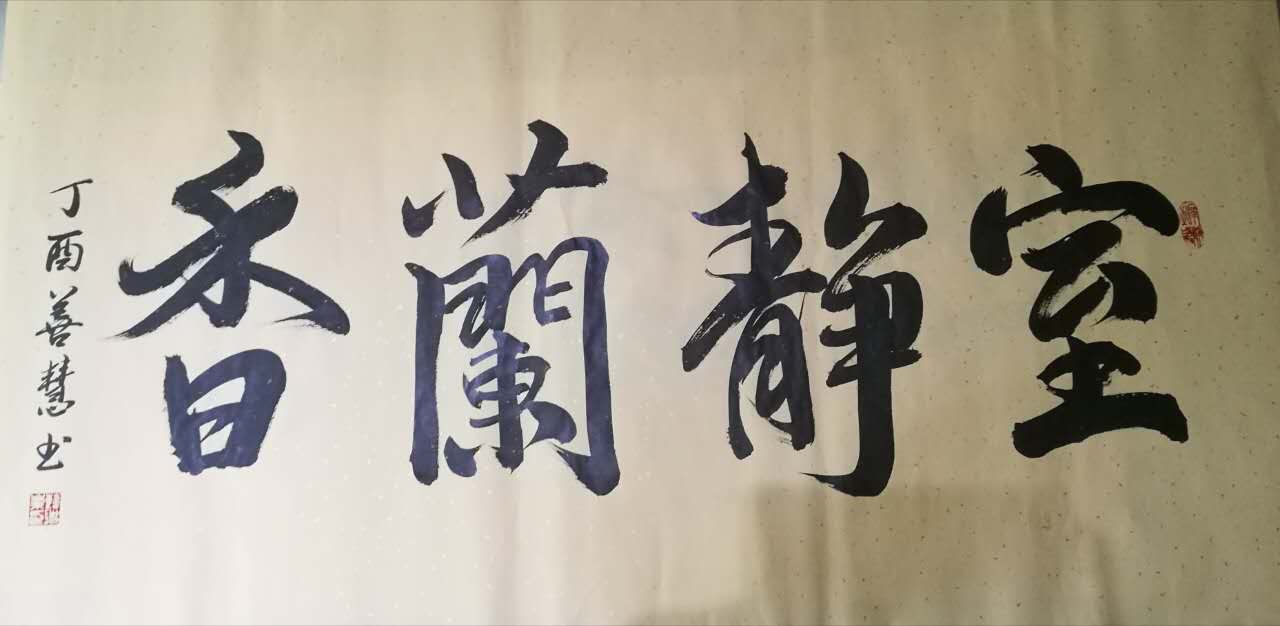 室靜蘭香
丁酉善慧书